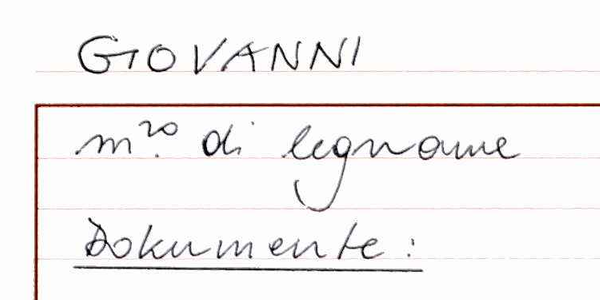 GIOVANNI
m.ro di legname
Dokumente: